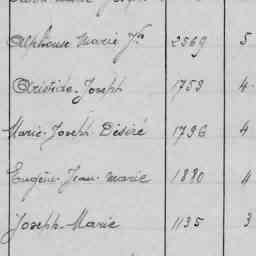 Alphonse Marie Jh 2569 5
Aristide Joseph 1759 4
Marie-Joseph Désiré 1796 4
Eugène Jean Marie 1880 4
Joseph Marie 1135 3